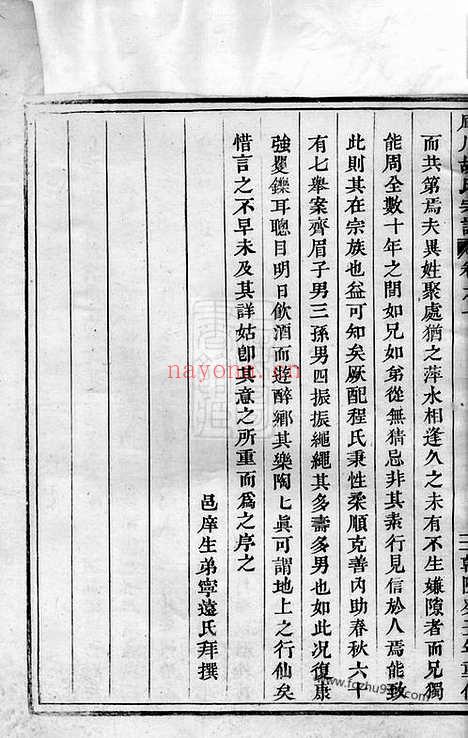 而共第焉夫異姓聚處猶之萍水相逢久之未有不生嫌隙者而兄獨
能周全數十年之間如兄如弟從無猜忌非其素行見信於人焉能致
此則其在宗族也益可知矣厥配程氏秉性柔順克善內助春秋六十
有七舉案齊眉子男三孫男四振振繩繩其多壽多男也如此况復康
強矍鑠耳聰目明日飲酒而遊醉鄉其樂陶七眞可謂地上之行仙矣
惜言之不早未及其詳姑卽其意之所重而爲之序之
邑庠生弟寧遠氏拜撰
nayona.cn
www.fgzhu99.com